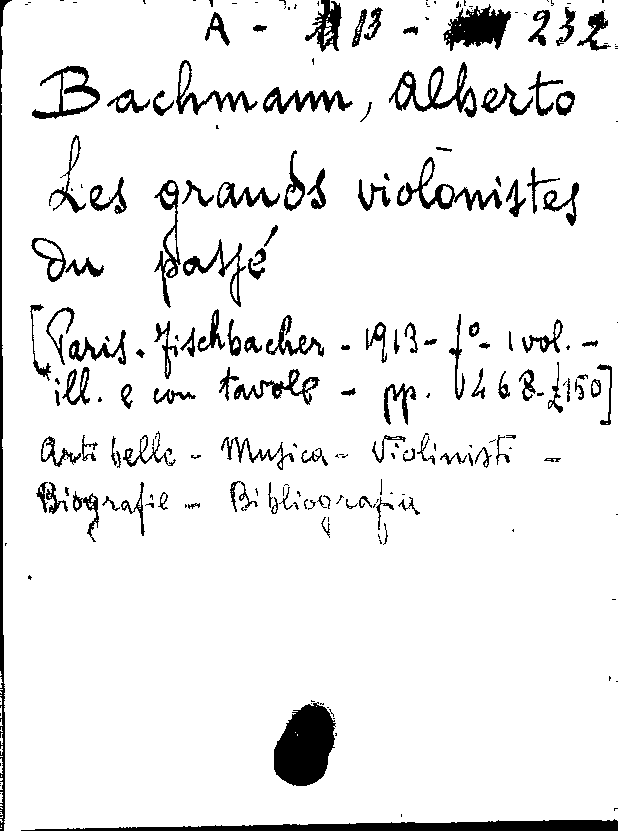 A - 13 - 232
Bachmann, Alberto
Les grands violonistes
du passé
[Paris. Fischbacher - 1913 - f° - 1 vol. -
ill. e con tavole - pp. 468 - £150]
Arti belle - Musica - Violinisti -
Biografie - Bibliografia